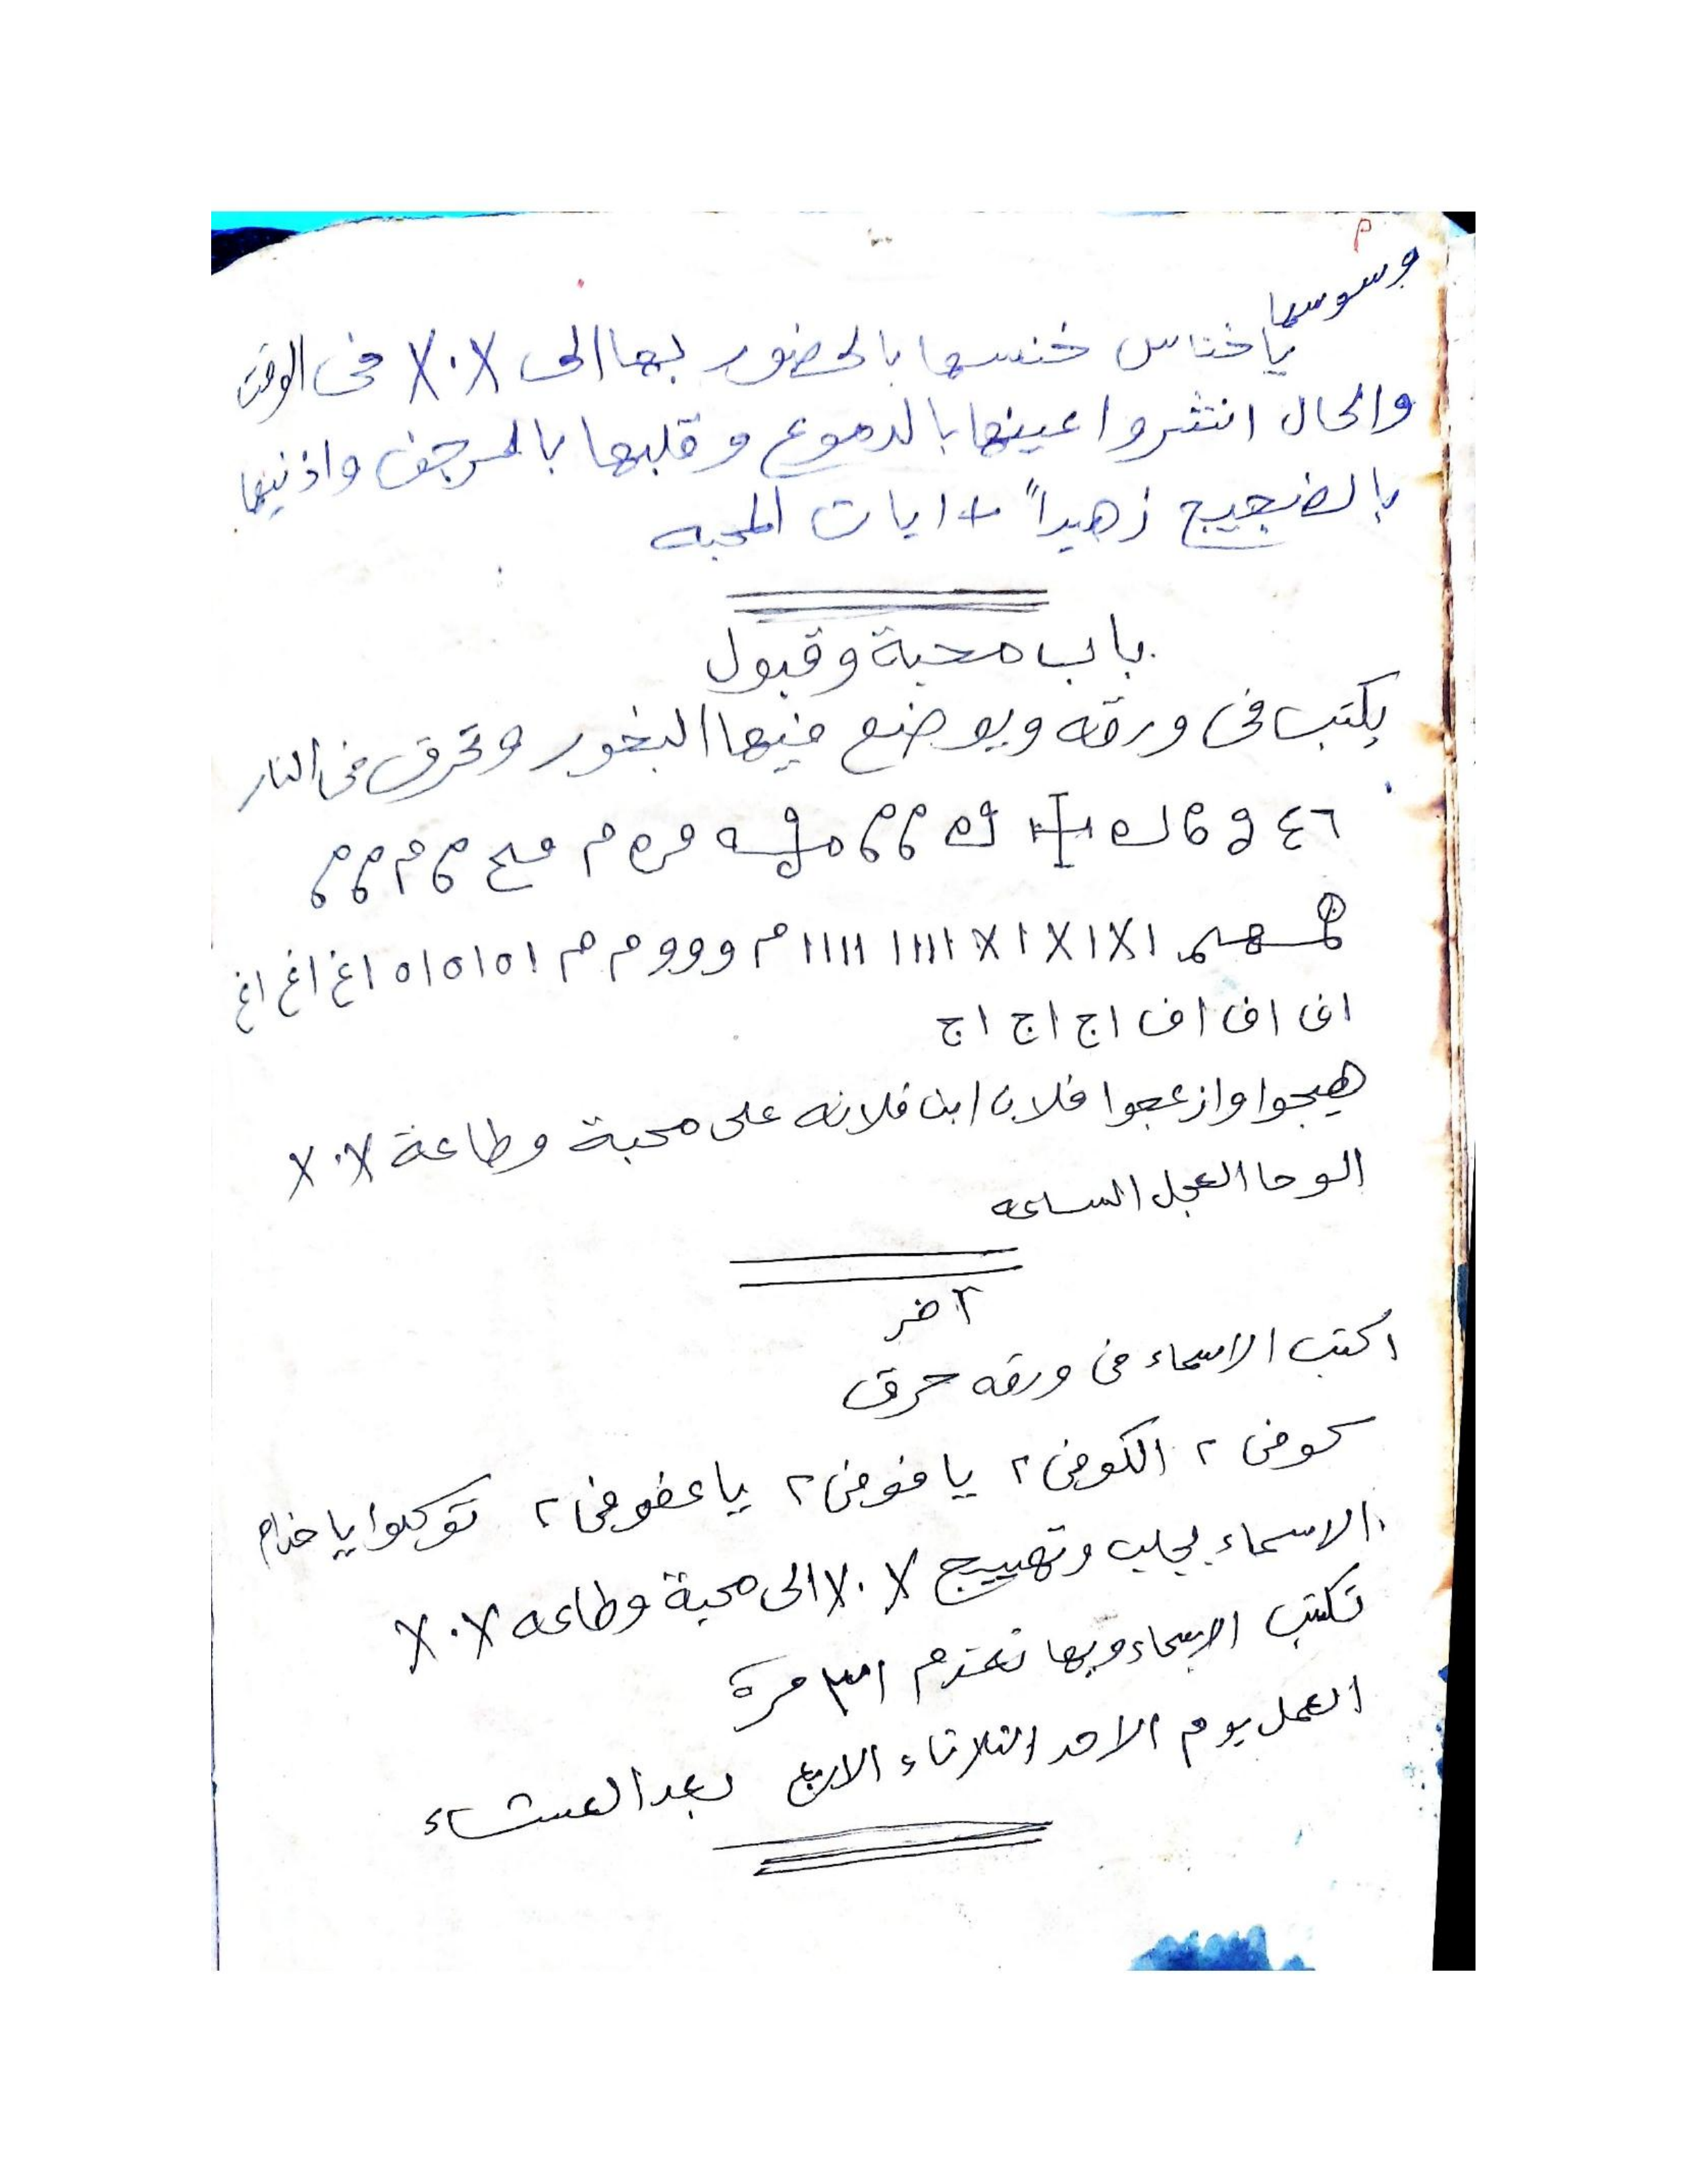 م
وسوسها
يا خناس خنسها بالحضور بها الى X٠X فى الوقت
والحال انتشروا عينها بالدموع و قلبها بالرجف واذنيها
بالضجيج زهيداً + ايات المحبه
باب محبة وقبول
يكتب فى ورقه ويوضع فيها البخور وتحرق فى النار
١X١X١X١X ١١١١ ١١١١١ م و و و م م ١٥١٥١٥ اغ اغ اغ
اف اف اف اج اج اج
هيجوا وازعجوا فلان ابن فلانه على محبة وطاعة X٠X
الوحا العجل الساعه
آخر
اكتب الاسماء فى ورقه حرق
كوفى ٢ الكوفى ٢ يا فوفى ٢ يا عفوفى ٢ توكلوا يا خدام
الاسماء بجلب وتهييج X٠X الى محبة وطاعه X٠X
تكتب الاسماء وبها تعزم ٣١ مرة
العمل يوم الاحد الثلاثاء الاربع بعد العشاء